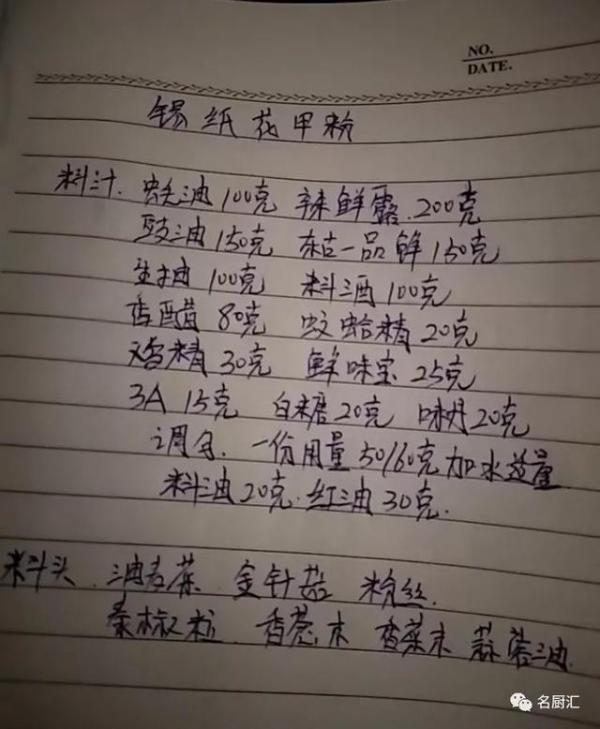 NO.
DATE.
锡纸花甲粉
料汁. 蚝油100克 辣鲜露.200克
豉油150克 东古一品鲜150克
生抽100克 料酒100克
香醋80克 蚊蛤精20克
鸡精30克 鲜味宝25克
3A 15克 白糖20克 味丹20克
调匀. 一份用量50/60克加水适量
料油20克.红油30克.
料头.油麦菜 金针菇 粉丝.
秦椒粒 香葱末 香菜末 蒜蓉油.
名厨汇